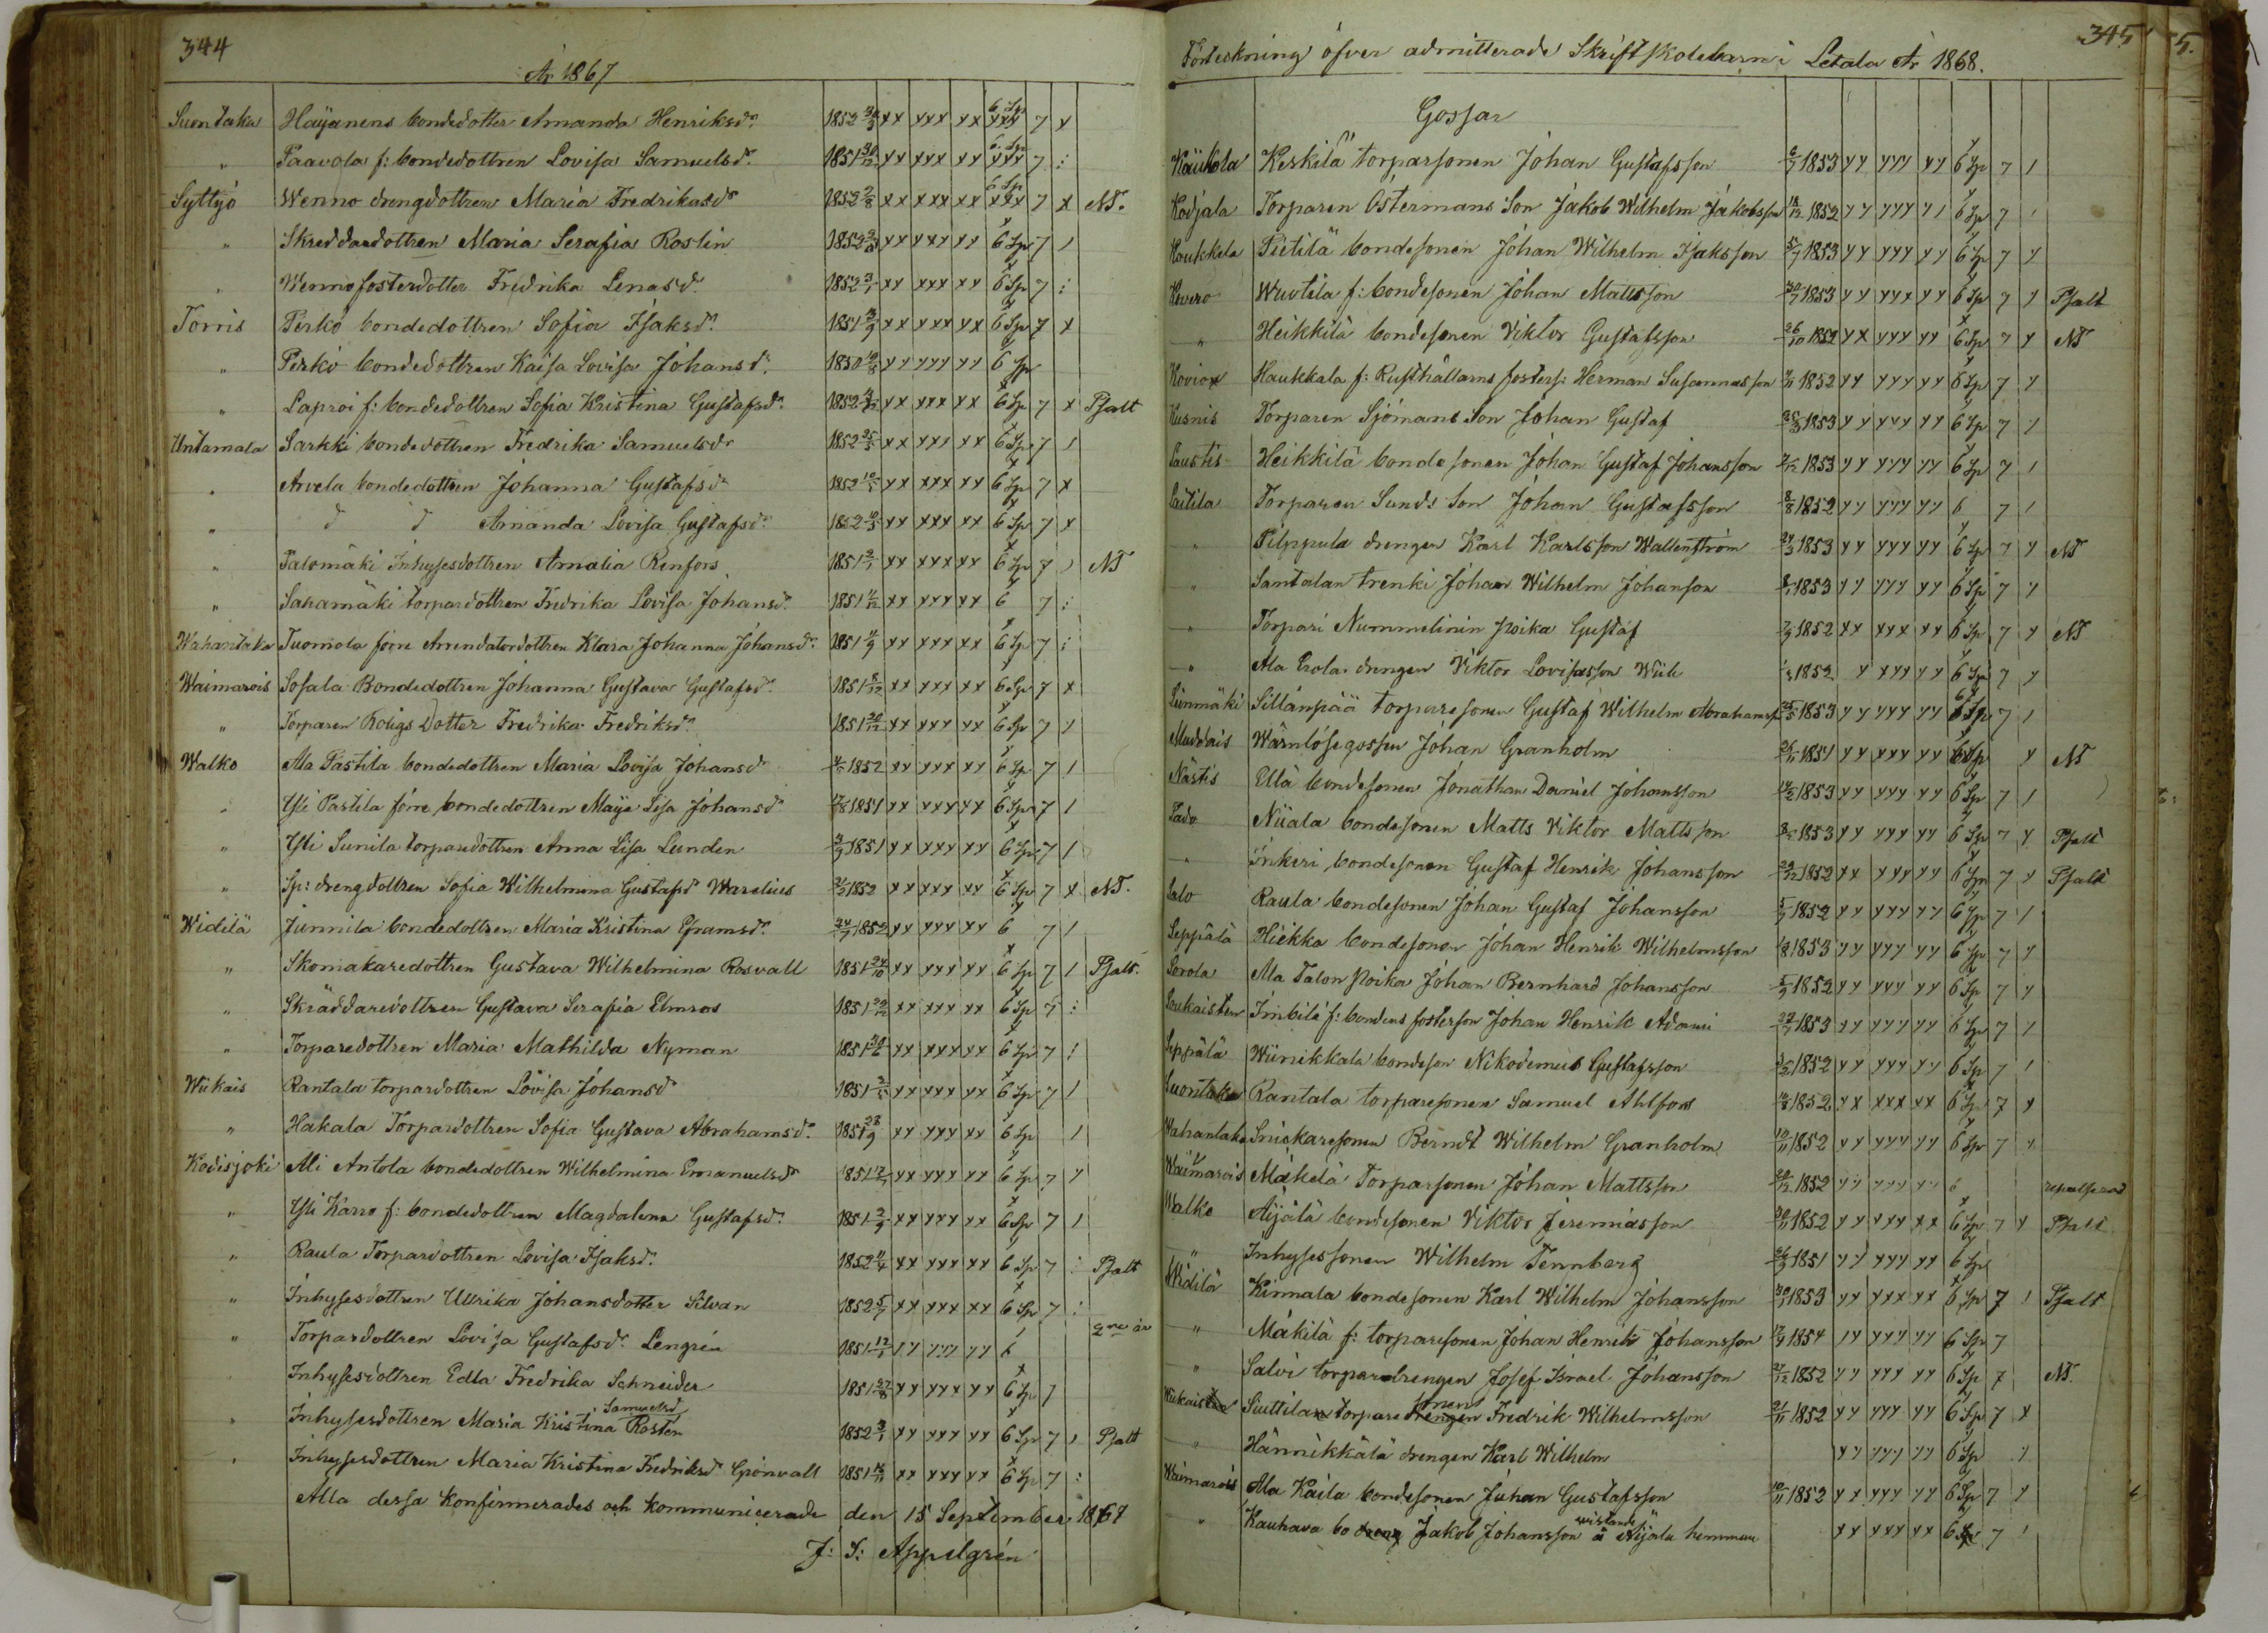 344
År 1867
Suontaka Häyänens bondedotter Amanda Henriksdr 1852 xx xxx xx 6 Sp xxx 7 x
" Paavola f: bondedottren Lovisa Samuelsdr 1851 xx xxx xx 6 Sp xxx 7 :
Syttyö Wenno drengdottren Maria Fredriksdr 1852 2/8 xx xxx xx 6 Sp xxx 7 x NT.
" Skreddaredottren Maria Serafia Roslin 1852 xx xxx xx 6 Sp 7 /
" Wenno fosterdotter Fredrika Lenasdr 1852 3/1 xx xxx xx 6 Sp 7 :
Torris Perko bondedottren Sofia Isaksdr 1851 xx xxx xx 6 Sp 7 x
" Perko bondedottren Kaisa Lovisa Johansdr 1850 xx xxx xx 6 Sp
" Laproi f: bondedottren Sofia Kristina Gustafsdr 1852 xx xxx xx 6 Sp 7 x Psalt
Untamala Sarkki bondedottren Fredrika Samuelsdr 1852 25/5 xx xxx xx 6 Sp 7 /
" Arvela bondedottren Johanna Gustafsdr 1852 xx xxx xx 6 Sp 7 x
" d d Amanda Lovisa Gustafsdr 1852 xx xxx xx 6 Sp 7 x
" Talomäki Inhysesdottren Amalia Renfors 1851 xx xxx xx 6 Sp 7 ) NT
" Saharmäki torpardottren Fredrika Lovisa Johansdr 1851 xx xxx xx 6 7 :
Wahantaka Tuomola förre Arrendatordottren Klara Johanna Johansdr 1851 xx xxx xx 6 Sp 7 :
Waimarois Sofala Bondedottren Johanna Gustava Gustafsdr 1851 xx xxx xx 6 Sp 7 x
" Torparen Roligs Dotter Fredrika Fredriksdr 1851 xx xxx xx 6 Sp 7 /
Walko Ala Pastila bondedottren Maria Lovisa Johansdr 1852 xx xxx xx 6 Sp 7 /
" Yli Pastila förre bondedottren Maija Lisa Johansdr 1851 xx xxx xx 6 Sp 7 /
" Yli Sunila torparedottren Anna Lisa Lunden 1851 xx xxx xx 6 Sp 7 /
" Sp: drengdottren Sofia Wilhelmina Gustafsd Warelius 1852 xx xxx xx 6 Sp 7 x NT.
Widilä Junnila bondedottren Maria Kristina Eframsdr 1852 xx xxx xx 6 7 /
" Skomakaredottren Gustava Wilhelmina Rosvall 1851 24/10 xx xxx xx 6 Sp 7 / Psalt.
" Skräddaredottren Gustava Serafia Elmros 1851 xx xxx xx 6 Sp 7 :
" Torparedottren Maria Mathilda Nyman 1851 xx xxx xx 6 Sp 7 :
Wiikais Rantala torpardottren Lovisa Johansdr 1851 xx xxx xx 6 Sp 7 /
" Hakala Torpardottren Sofia Gustava Abrahamsdr 1851 28/9 xx xxx xx 6 Sp /
Kodisjoki Ali Antola bondedottren Wilhelmina Emanuelsdr 1851 xx xxx xx 6 Sp 7 /
" Yli Karro f: bondedottren Magdalena Gustafsdr 1851 2/9 xx xxx xx 6 Sp 7 /
" Raula Torpardottren Lovisa Isaksdr 1852 xx xxx xx 6 Sp 7 : Psalt
" Inhysesdottren Ullrika Johansdotter Silvan 1852 5/7 xx xxx xx 6 Sp 7 :
" Torpardottren Lovisa Gustafsdr Lengrén 1851 xx xxx xx 6 2ne år
Inhysesdottren Edla Fredrika Schneider 1851 27/8 xx xxx xx 6 Sp 7
Samuelsd
" Inhysesdottren Maria Kristina Rostén 1852 xx xxx xx 6 Sp 7 / Psalt
" Inhysesdottren Maria Kristina Fredriksdr Grönvall 1851 xx xxx xx 6 Sp 7 :
Alla dessa konfirmerades och kommunicerade den 15 September 1867
J: S: Appelgrén
345
Förteckning öfver admitterade Skriftskolebarn i Letala År 1868.
Gossar
Käukola Keskilä torparsonen Johan Gustafsson 6/7 1853 xx xxx xx 6 Sp 7 /
Kodjala Torparen Östermans Son Jakob Wilhelm Jakobsson 1852 xx xxx x/ 6 Sp 7 /
Koukkela Pietilä bondesonen Johan Wilhelm Isaksson 1853 xx xxx xx 6 Sp 7 x
Kovero Wuotila f: bondesonen Johan Mattsson 1853 xx xxx xx 6 Sp 7 x Psalt
" Heikkilä bondesonen Viktor Gustafsson 26/10 1852 xx xxx xx 6 Sp 7 x NT
Koviox Haukkala f: Rusthållarns fosters: Herman Susannasson 1852 xx xxx xx 6 Sp 7 x
Kusnis Torparen Sjömans Son Johan Gustaf 1853 xx xxx xx 6 Sp 7 /
Laustis Heikkilä bondesonen Johan Gustaf Johansson 1853 xx xxx xx 6 Sp 7 /
Laitila Torparen Sunds Son Johan Gustafsson 8/8 1852 xx xxx xx 6 7 /
" Pilppula drengen Karl Karlsson Wallenström 1853 xx xxx xx 6 Sp 7 x NT
" Santalan trenki Johan Wilhelm Johansson 1853 xx xxx xx 6 Sp 7 x
" Torpari Nummelinin poika Gustaf 1852 xx xxx xx 6 Sp 7 x NT
" Ala Erola drengen Viktor Lovisasson Wiik 1852 x xxx xx 6 Sp 7 x
Sinmäki Sillanpää torparesonen Gustaf Wilhelm Abrahamss 1853 xx xxx xx 6 Sp 7 /
Muddais Wärnlösegossen Johan Granholm 1851 xx xxx xx 6 Sp x NT
Nästis Ulä bondesonen Jonathan Daniel Johansson 1853 xx xxx xx 6 Sp 7 /
Pado Niiala bondesonen Matts Viktor Mattsson 1853 xx xxx xx 6 Sp 7 x Psalt
" Inkeri bondesonen Gustaf Henrik Johansson 1852 xx xxx xx 6 Sp 7 x Psalt
Salo Raula bondesonen Johan Gustaf Johansson 1852 xx xxx xx 6 Sp 7 /
Seppälä Hiekka bondesonen Johan Henrik Wilhelmsson 1853 xx xxx xx 6 Sp 7 x
Sorola Ala Talon poika Johan Bernhard Johansson 1852 xx xxx xx 6 Sp 7 x
Soukaisten Imbilä f: bondens fosterson Johan Henrik Adami 1853 xx xxx xx 6 Sp 7 /
Seppälä Wiinikkala bondeson Nikodemus Gustafsson 1852 xx xxx xx 6 Sp 7 /
Suontaka Rantala torparesonen Samuel Ahlfors 1852 xx xxx xx 6 Sp 7 x
Wahantaka Snickaresonen Berndt Wilhelm Granholm 1852 xx xxx xx 6 Sp 7 x
Waimarois Mäkelä Torparsonen Johan Mattsson 1852 xx xxx xx 6
Walko Äijälä bondesonen Viktor Jeremiasson 1852 xx xxx xx 6 Sp 7 x Psalt
" Inhysessonen Wilhelm Tennberg 1851 xx xxx xx 6 Sp
Widilä Kinnala bondesonen Karl Wilhelm Johansson 1853 xx xxx xx 6 Sp 7 / Psalt
" Mäkilä f: torparesonen Johan Henrik Johansson 1854 xx xxx xx 6 Sp 7
" Salvi torparedrengen Josef Israel Johansson 27/12 1852 xx xxx xx 6 Sp 7 NT.
sonen
Wiikais Siuttila torpare drengen Fredrik Wilhelmsson 21/11 1852 xx xxx xx 6 Sp 7 x
" Hännikkälä drengen Karl Wilhelm xx xxx xx 6 Sp x
Waimarois Ala Kaila bondesonen Juhan Gustafsson 10/11 1852 xx xxx xx 6 Sp 7 x
vistande
" Kauhava bo dreng Jakob Johansson å Äijälä hemman xx xxx xx 6 Sp 7 /